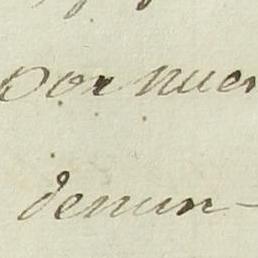 por nues
denun-